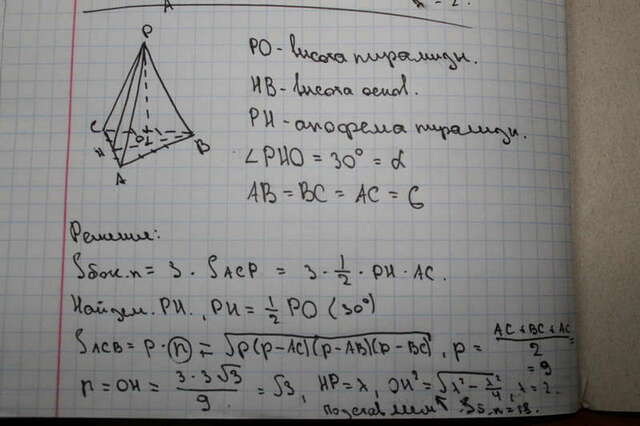 P
C
O
H
B
A
PO - висота пирамиды.
HB - висота основ.
PH - апофема пирамиды.
∠PHO = 30° = α
AB = BC = AC = 6
Решение:
Sбок.п = 3 · SACP = 3 · 1/2 · PH · AC.
Найдем. PH., PH = 1/2 PO (30°)
SACB = P · n = √p(p-AC)(p-AB)(p-BC), p = AC+BC+AC/2 = 9
n = OH = 3·3√3/9 = √3, HP = λ, OH² = √λ² - λ²/4, λ = 2.
подставляем Sб.п = 18.